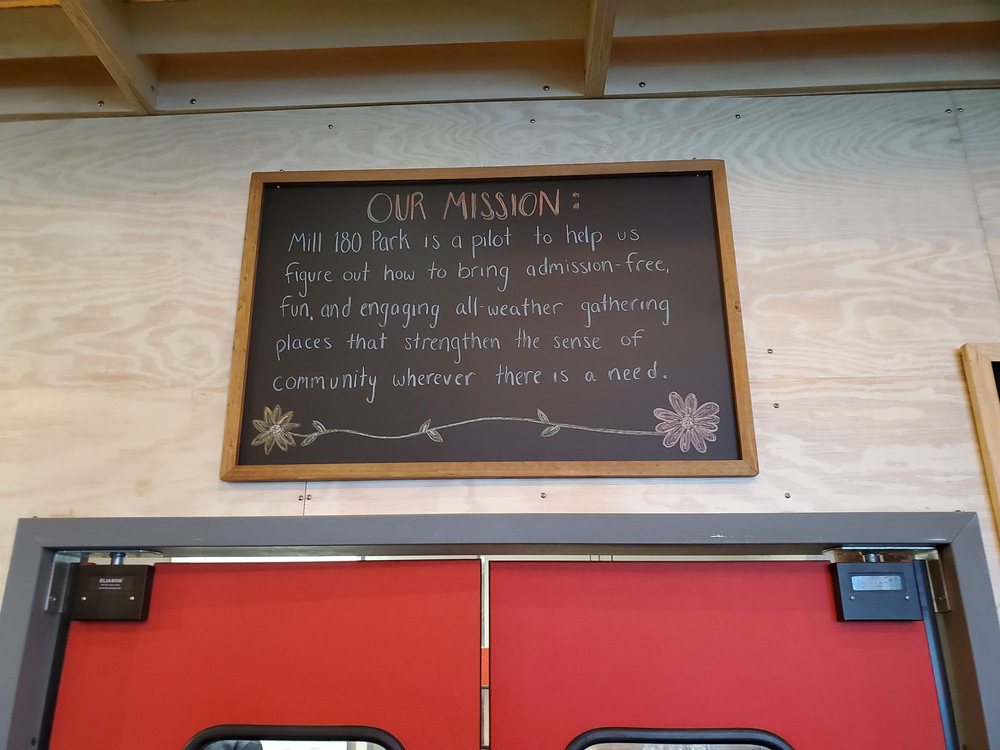 OUR MISSION:
Mill 180 Park is a pilot to help us
figure out how to bring admission-free,
fun, and engaging all-weather gathering
places that strengthen the sense of
community wherever there is a need.
ELIASON